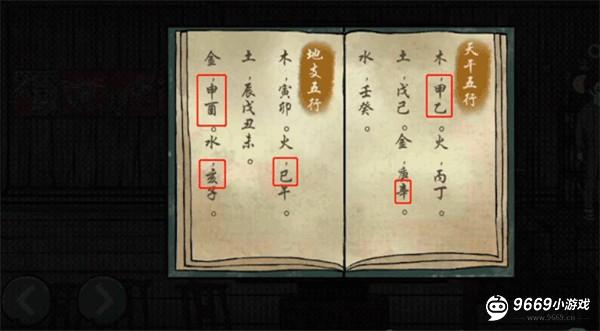 天干五行
木，甲乙。火，丙丁。
土，戊己。金，庚辛。
水，壬癸。
地支五行
木，寅卯。火，巳午。
土，辰戌丑未。
金，申酉。水，亥子。
9669小游戏
www.9669.cn